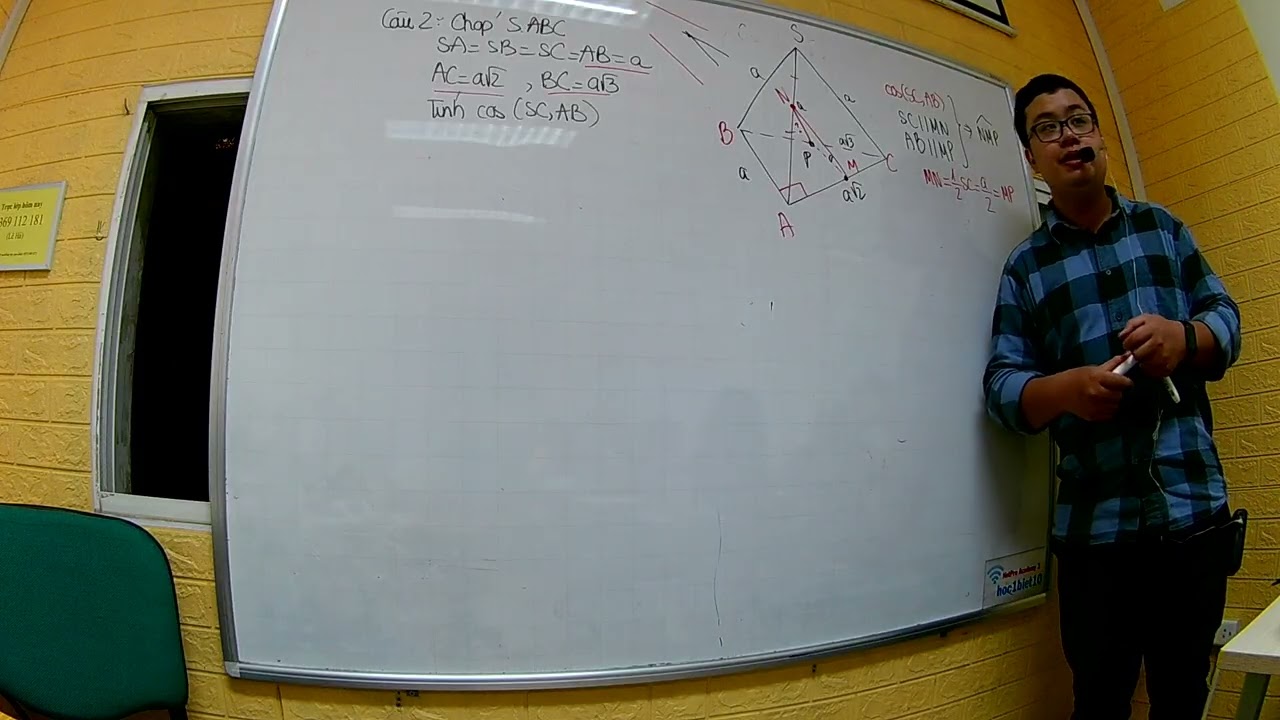 Câu 2: Chóp S.ABC
SA = SB = SC = AB = a
AC = a√2 , BC = a√3
Tính cos (SC, AB)
S
a
a
N
a
B
a√3
P
a
M
C
a
a√2
A
cos(SC, AB)
SC // MN
AB // MP
⇒ NMP
MN = 1/2 SC = a/2 = MP
Trực tiếp hôm nay
369 112 181
hoc1biet10